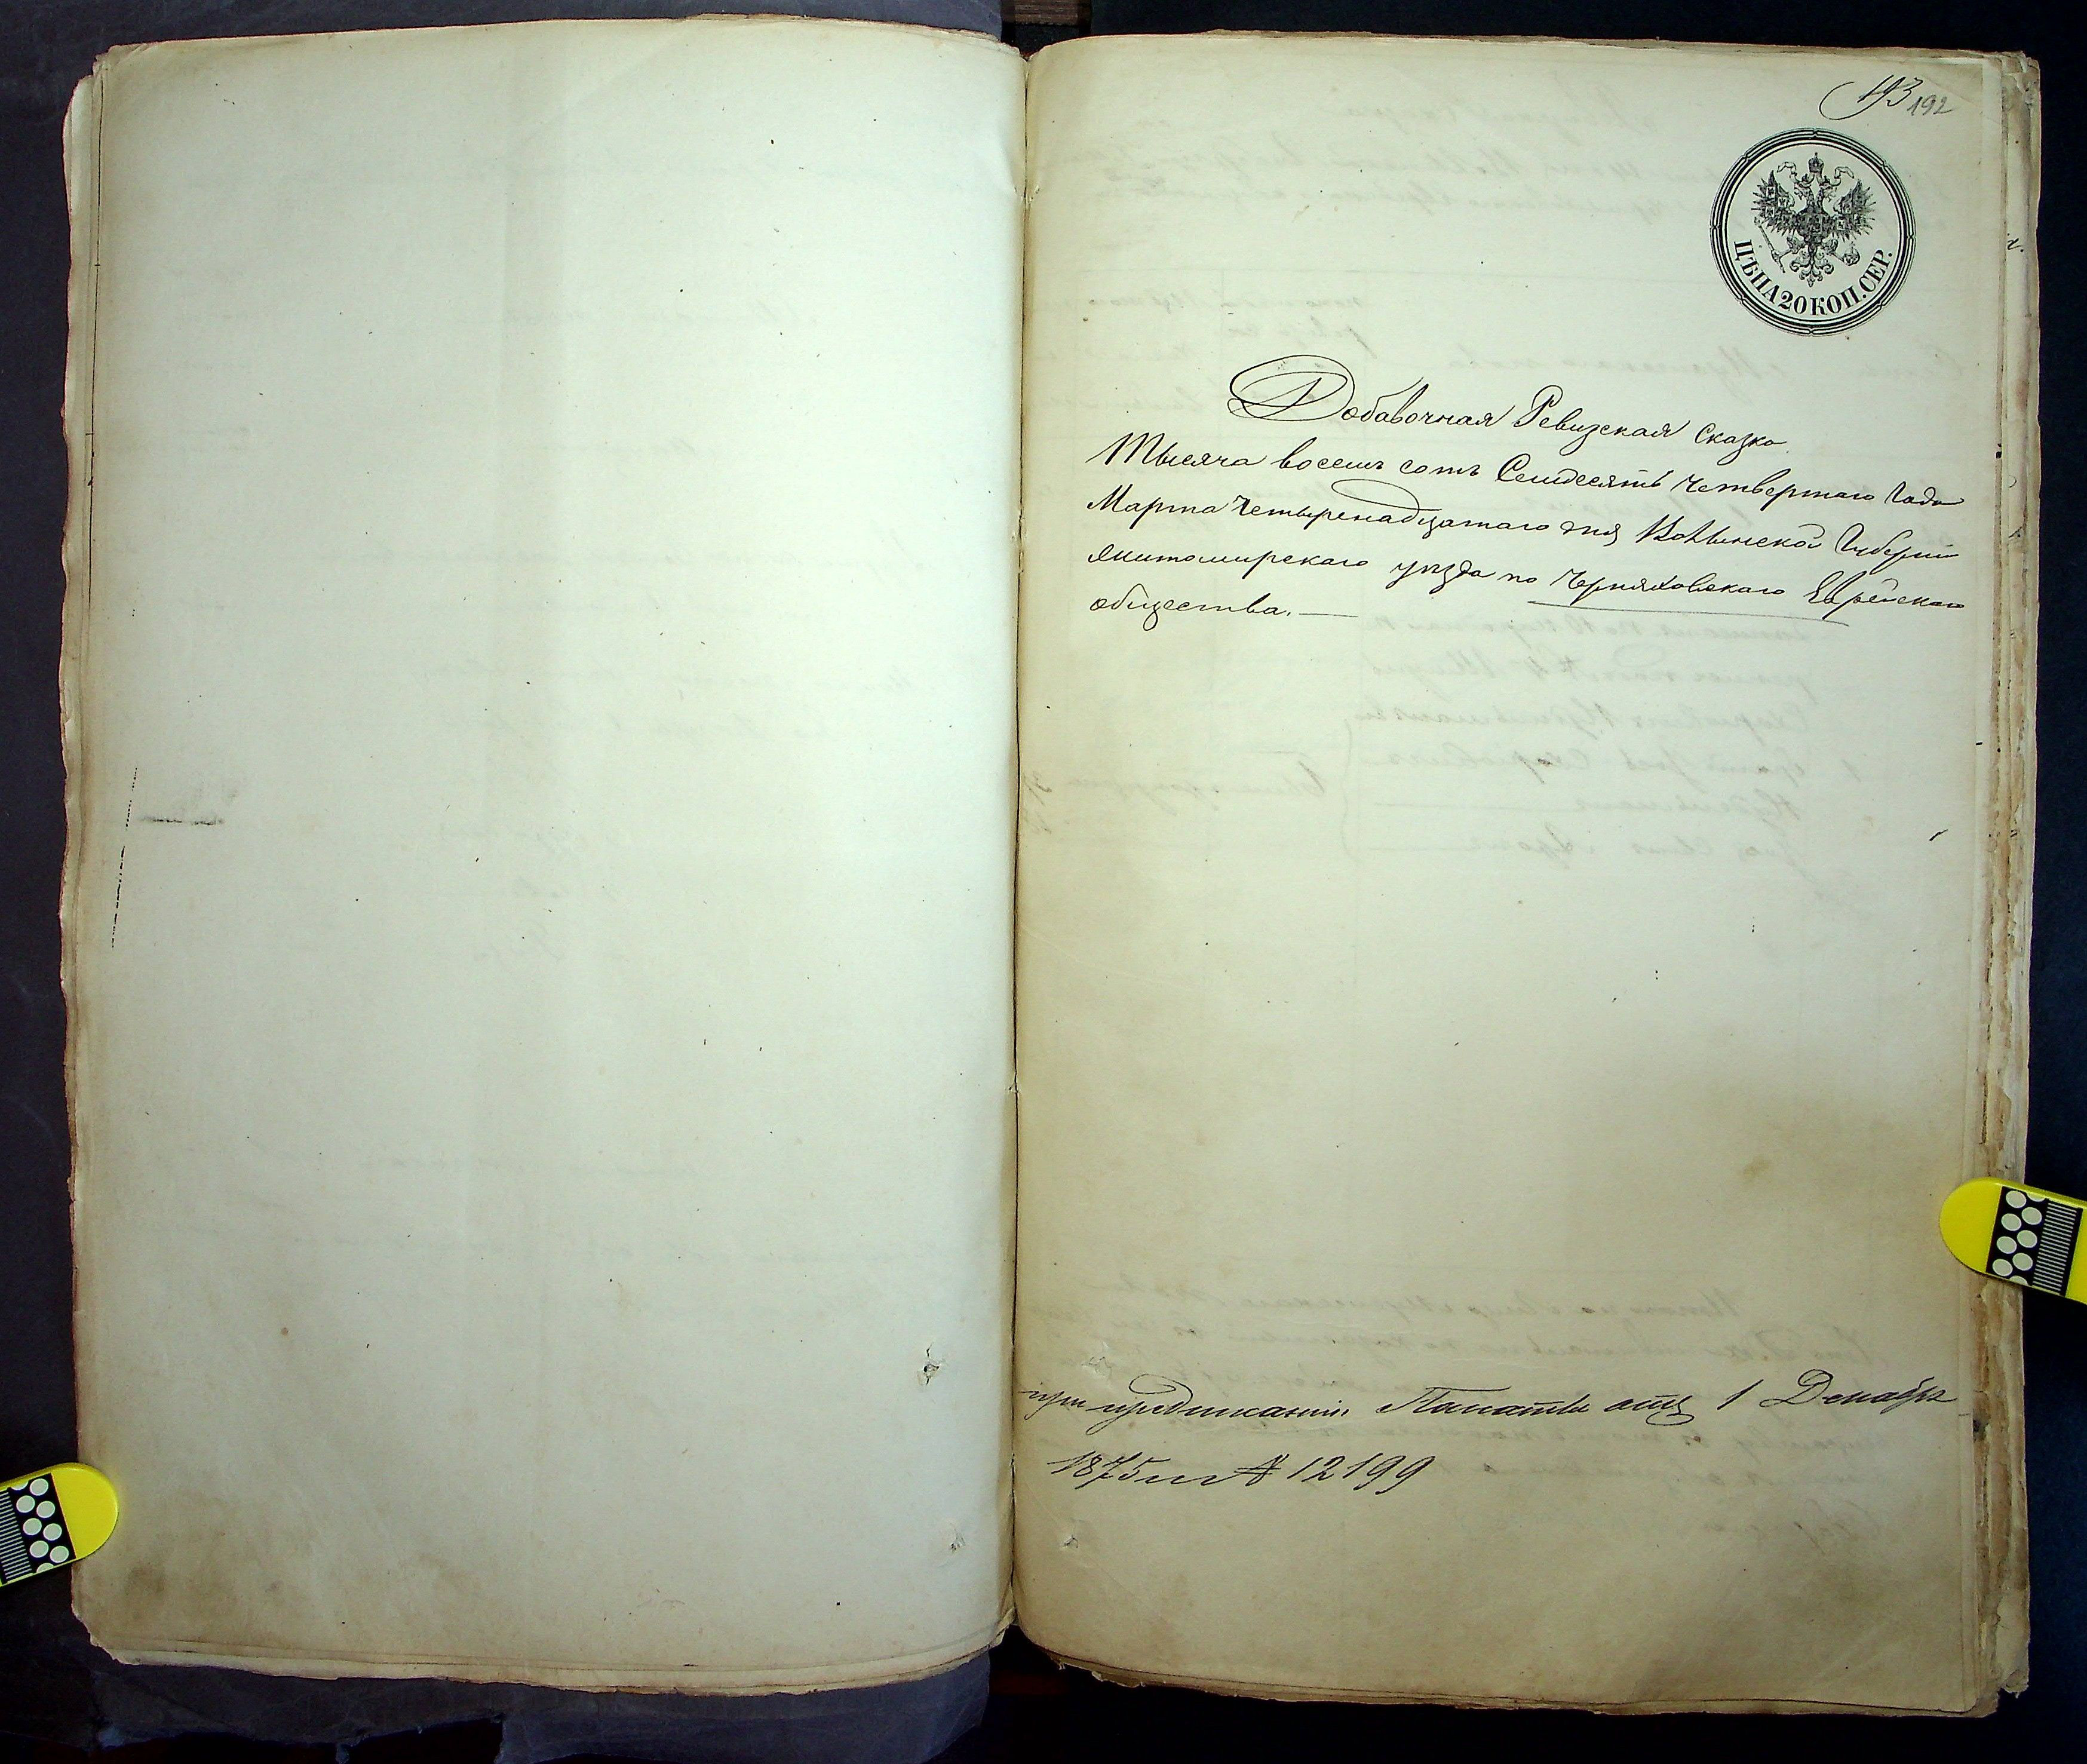 193 192
ЦѢНА 20 КОП. СЕР.
Добавочная Ревизская Сказка
Тысяча восемь сотъ Семдесятъ четвертаго Года
Марта Четыренадцатаго дня Волынской Губерніи
Житомирскаго уѣзда по Черняховскаго Еврейскаго
общества.
при предписаніи Палаты отъ 1 Декабря
1875 № 12199